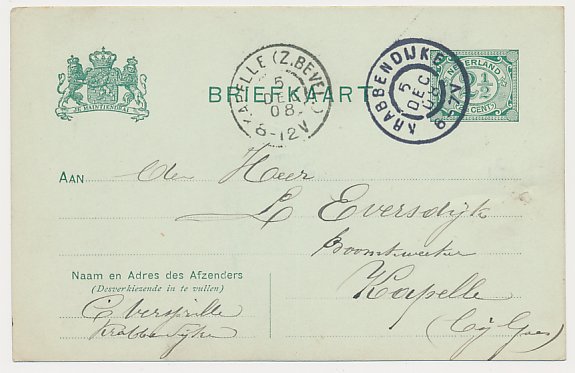 JE MAINTIENDRAI
BRIEFKAART
KAPELLE (Z.BEVEL.)
5
DEC
08
8-12V
KRABBENDIJKE
5
DEC
08
NEDERLAND
2½
CENTS
AAN den Heer
L Eversdijk
Boomkweeker
Kapelle
(bij Goes)
Naam en Adres des Afzenders
(Desverkiezende in te vullen)
Krabbendijke